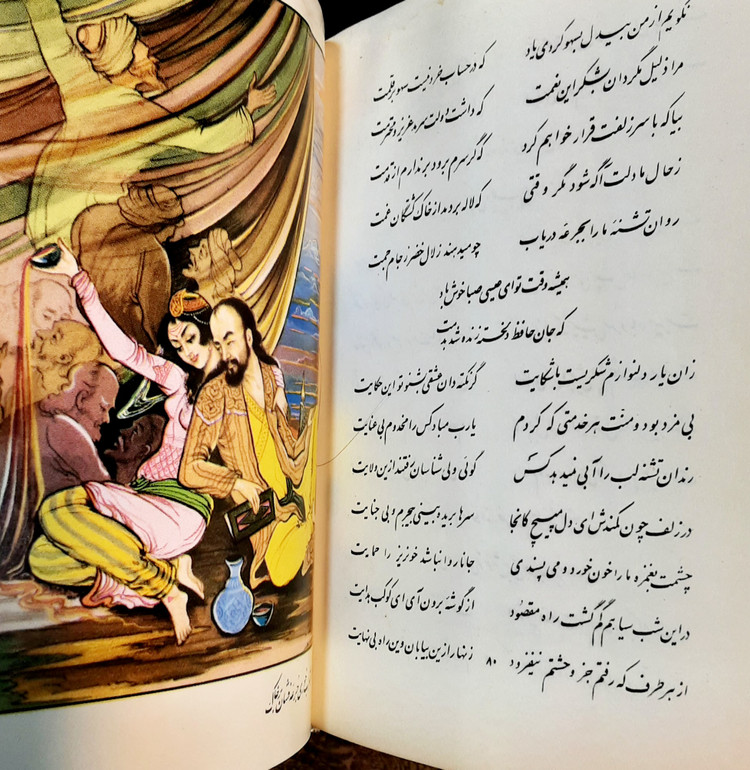 نگویم از من بیدل بسهو کردی یاد که در حساب خرد نیست سهو بر قلمت
مرا ذلیل مگردان بشکر این نعمت که داشت دولت سرمد عزیز و محترمت
بیا که با سر زلفت قرار خواهم کرد که گر سرم برود برندارم از قدمت
ز حال ما دلت آگه شود مگر وقتی که لاله بردمد از خاک کشتگان غمت
روان تشنهٔ ما را بجرعه دریاب چو میدهند زلال خضر ز جام جمت
همیشه وقت تو ای عیسی صبا خوش باد
که جان حافظ دلخسته زنده شد بدمت
زان یار دلنوازم شکریست با شکایت گر نکته دان عشقی بشنو تو این حکایت
بی مزد بود و منت هر خدمتی که کردم یارب مباد کس را مخدوم بی عنایت
رندان تشنه لب را آبی نمیدهد کس گوئی ولی شناسان رفتند ازین ولایت
در زلف چون کمندش ای دل مپیچ کانجا سرها بریده بینی بیجرم و بی جنایت
چشمت بغمزه ما را خون خورد و می پسندی جانا روا نباشد خونریز را حمایت
در این شب سیاهم گم گشت راه مقصود از گوشه برون آی ای کوکب هدایت
از هر طرف که رفتم جز وحشتم نیفزود زنهار ازین بیابان وین راه بی نهایت
۸۰